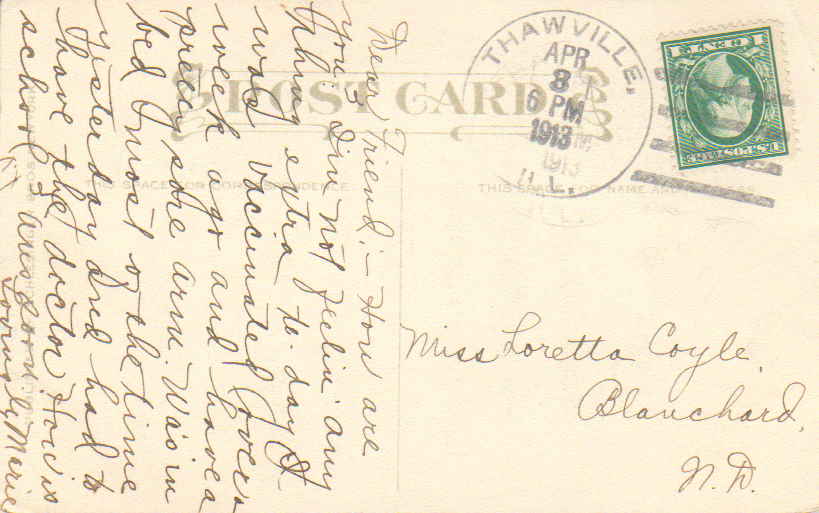 POST CARD
THIS SPACE FOR CORRESPONDENCE
THIS SPACE FOR NAME AND ADDRESS
THAWVILLE,
APR
8
6 PM
1913
ILL.
Dear Friend:- How are
you? I'm not feelin' any
thing extra to day. I
was vaccinated over a
week ago and have a
pretty sore arm. Was in
bed most of the time
yesterday and had to
have the doctor. How is
school?
Lovingly Marie
Miss Loretta Coyle
Blanchard,
N.D.